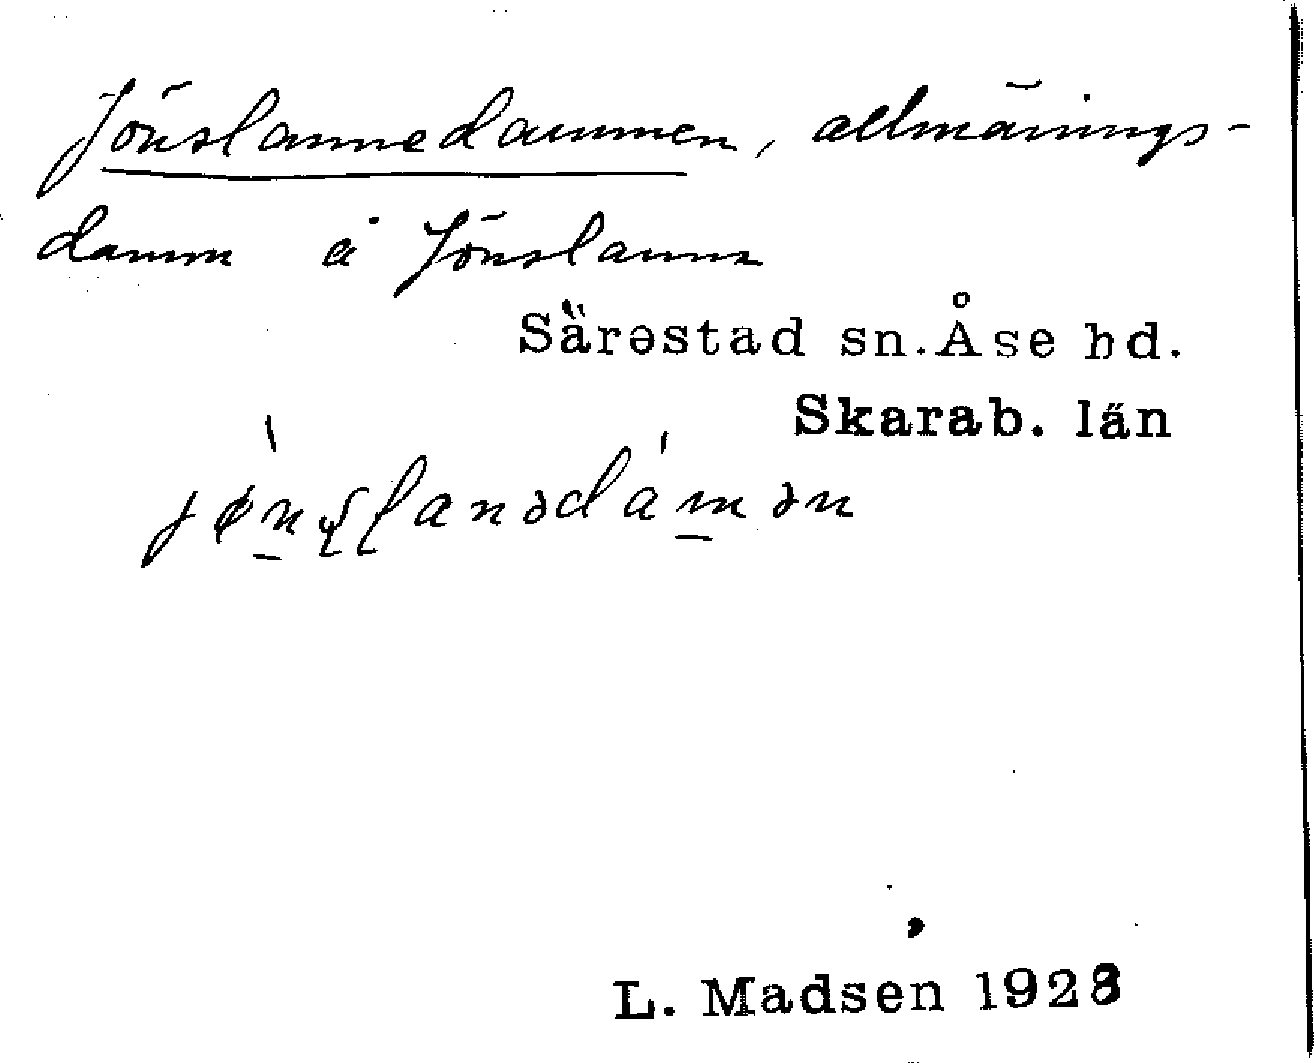 Jönslannedammen, allmänings-
damm å Jönslanna
Särestad sn. Åse hd.
Skarab. län
L. Madsen 1928